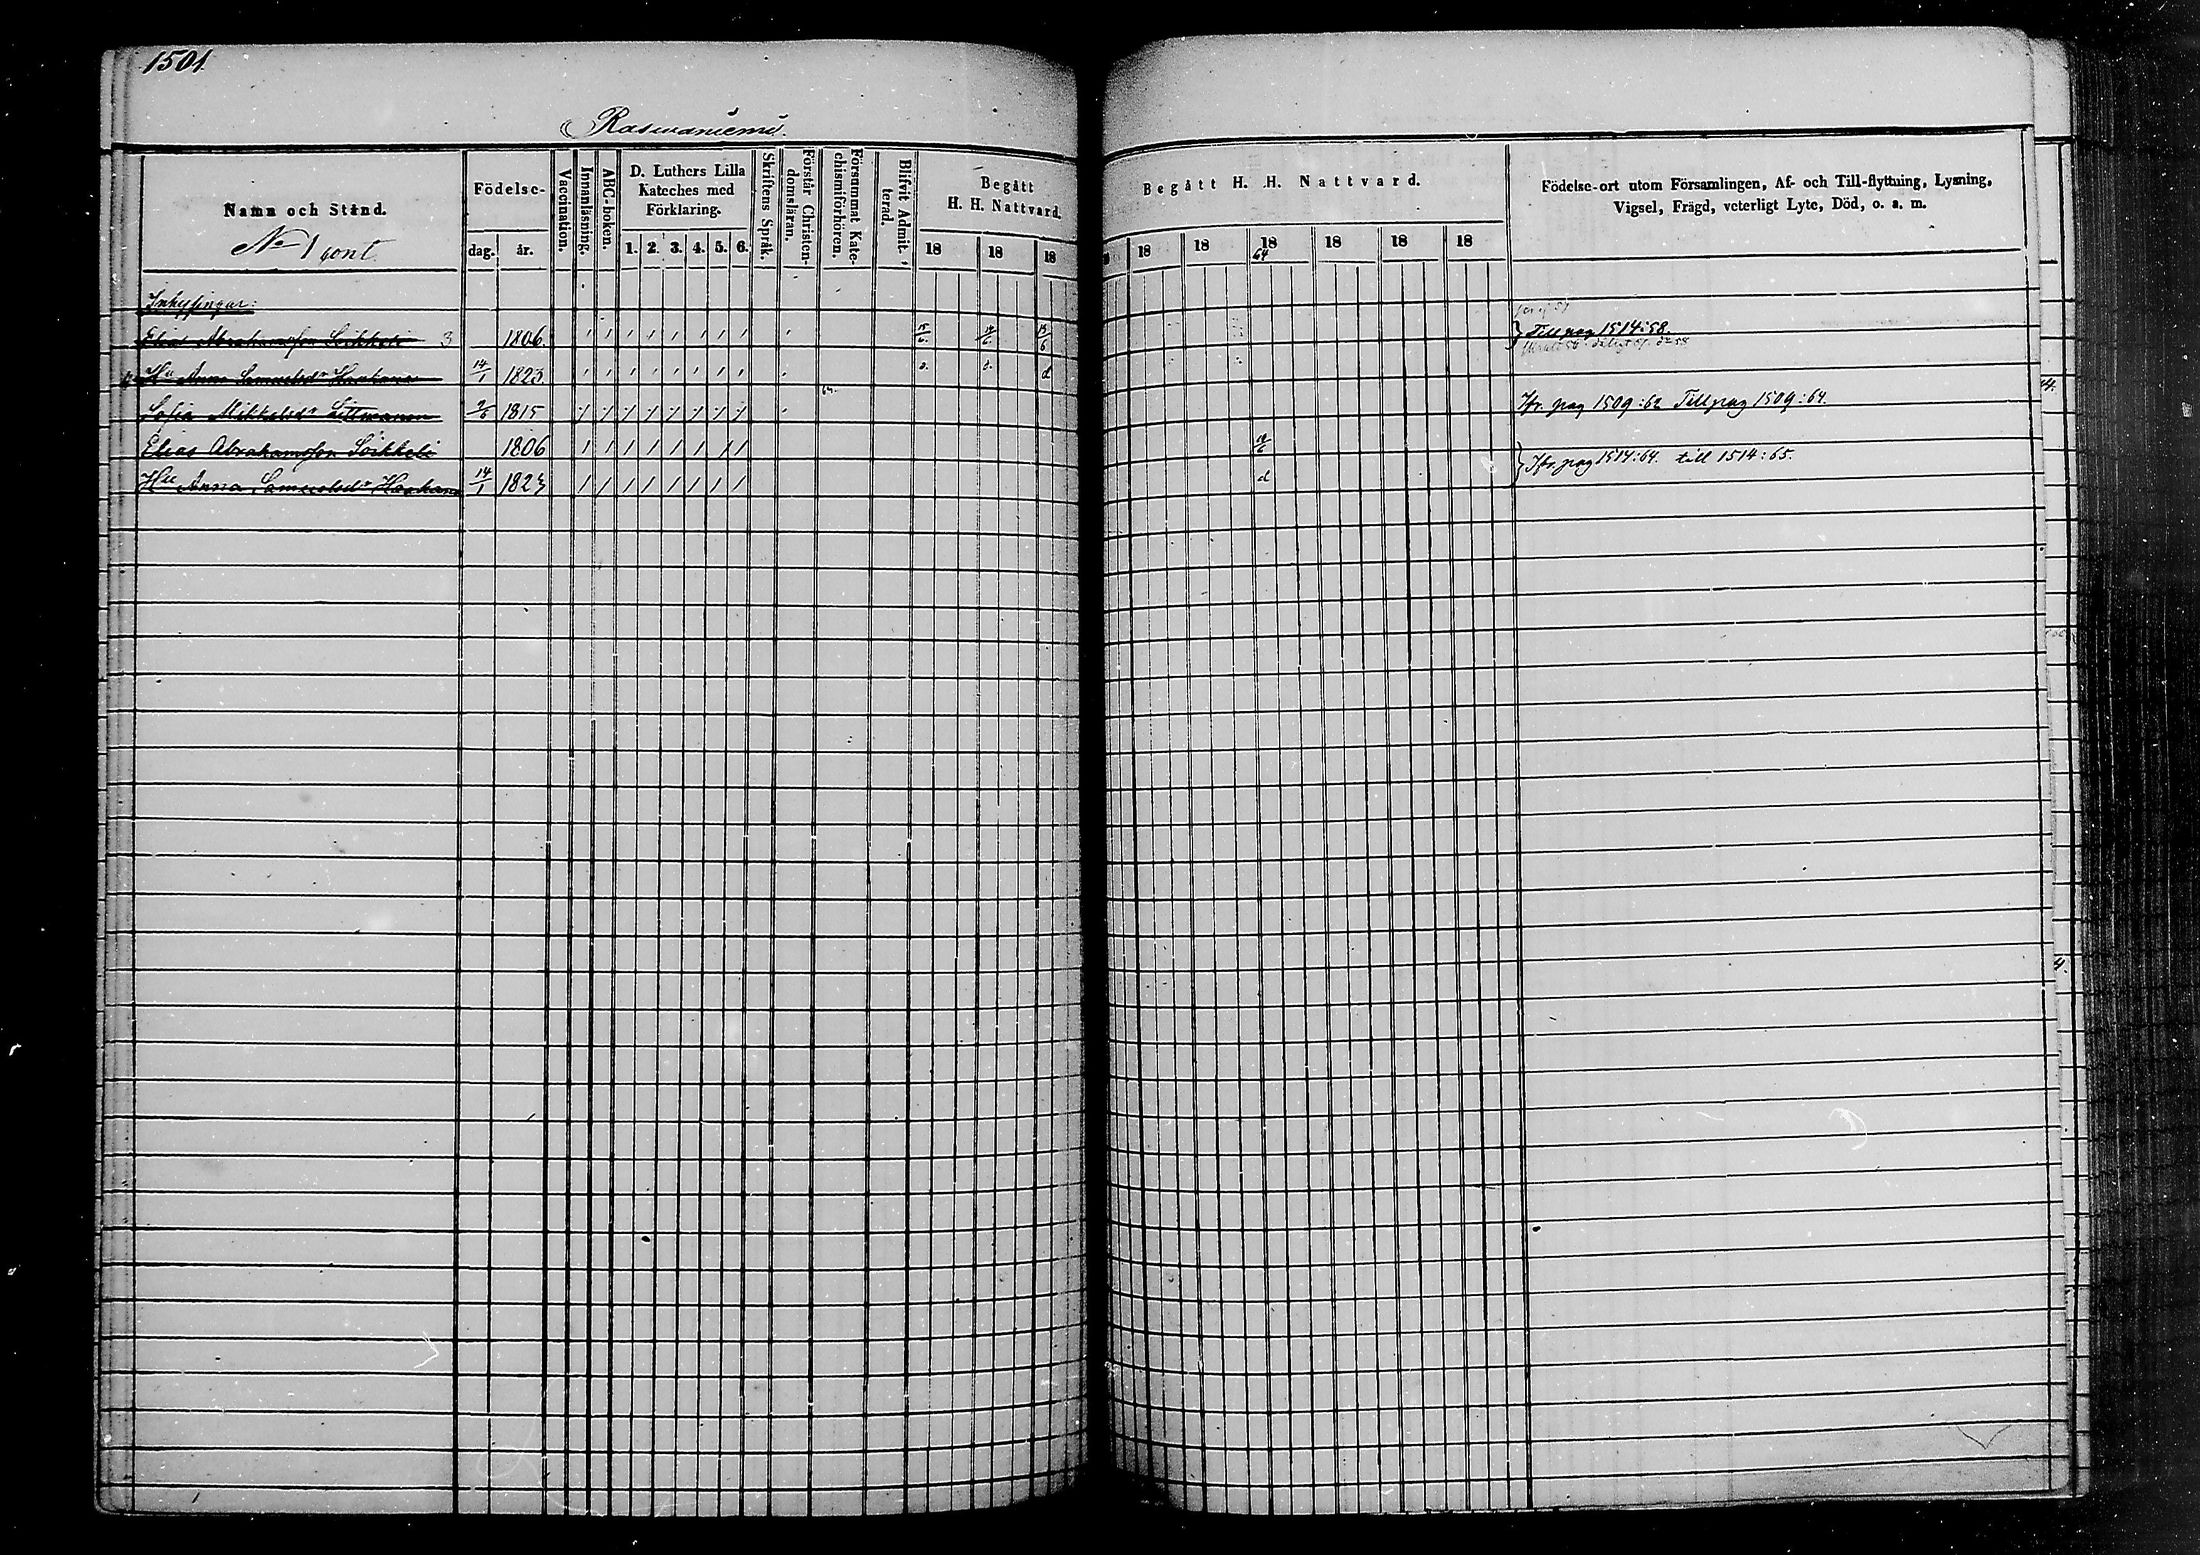 1501
Raswaniemi
Namn och Stånd.
No 1 cont.
Födelse-
dag. år.
Vaccination.
Innanläsning.
ABC-boken.
D. Luthers Lilla Kateches med Förklaring.
1. 2. 3. 4. 5. 6.
Skriftens Språk.
Förstår Christendomsläran.
Försummat Katechismiförhören.
Blifvit Admitterad.
Begått H. H. Nattvard.
18 18 18
Begått H. H. Nattvard.
18 18 18 64 18 18 18
Födelse-ort utom Församlingen, Af- och Till-flyttning, Lysning,
Vigsel, Frägd, veterligt Lyte, Död, o. s. m.
Inhysingar:
Elias Abrahamsson Soikkeli 3 1806 Till pag 1514:58.
Hu Anna Samuelsdr 14/1 1823
Sofia Mikkelsdr 1815 Ifr. pag 1509:62 Till pag 1509:64.
Elias Abrahamsson Soikkeli 1806
Hu Anna Samuelsdr 14/1 1823 d Ifr. pag 1514:64. till 1514:65.